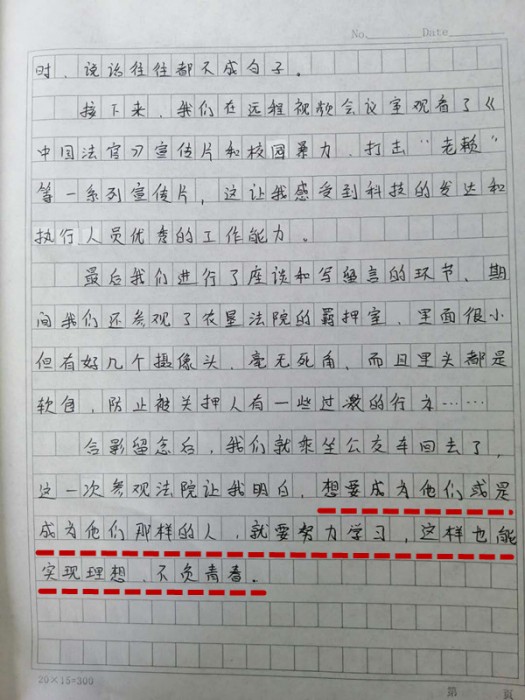 No. Date
时、说话往往都不成句子。
接下来，我们在远程视频会议室观看了《
中国法官》宣传片和校园暴力、打击“老赖”
等一系列宣传片，这让我感受到科技的发达和
执行人员优秀的工作能力。
最后我们进行了座谈和写留言的环节、期
间我们还参观了农垦法院的羁押室，里面很小
但有好几个摄像头、毫无死角、而且里头都是
软包，防止被关押人有一些过激的行为……
合影留念后，我们就乘坐公交车回去了，
这一次参观法院让我明白，想要成为他们或是
成为他们那样的人，就要努力学习，这样也能
实现理想、不负青春。
20×15=300 第 页